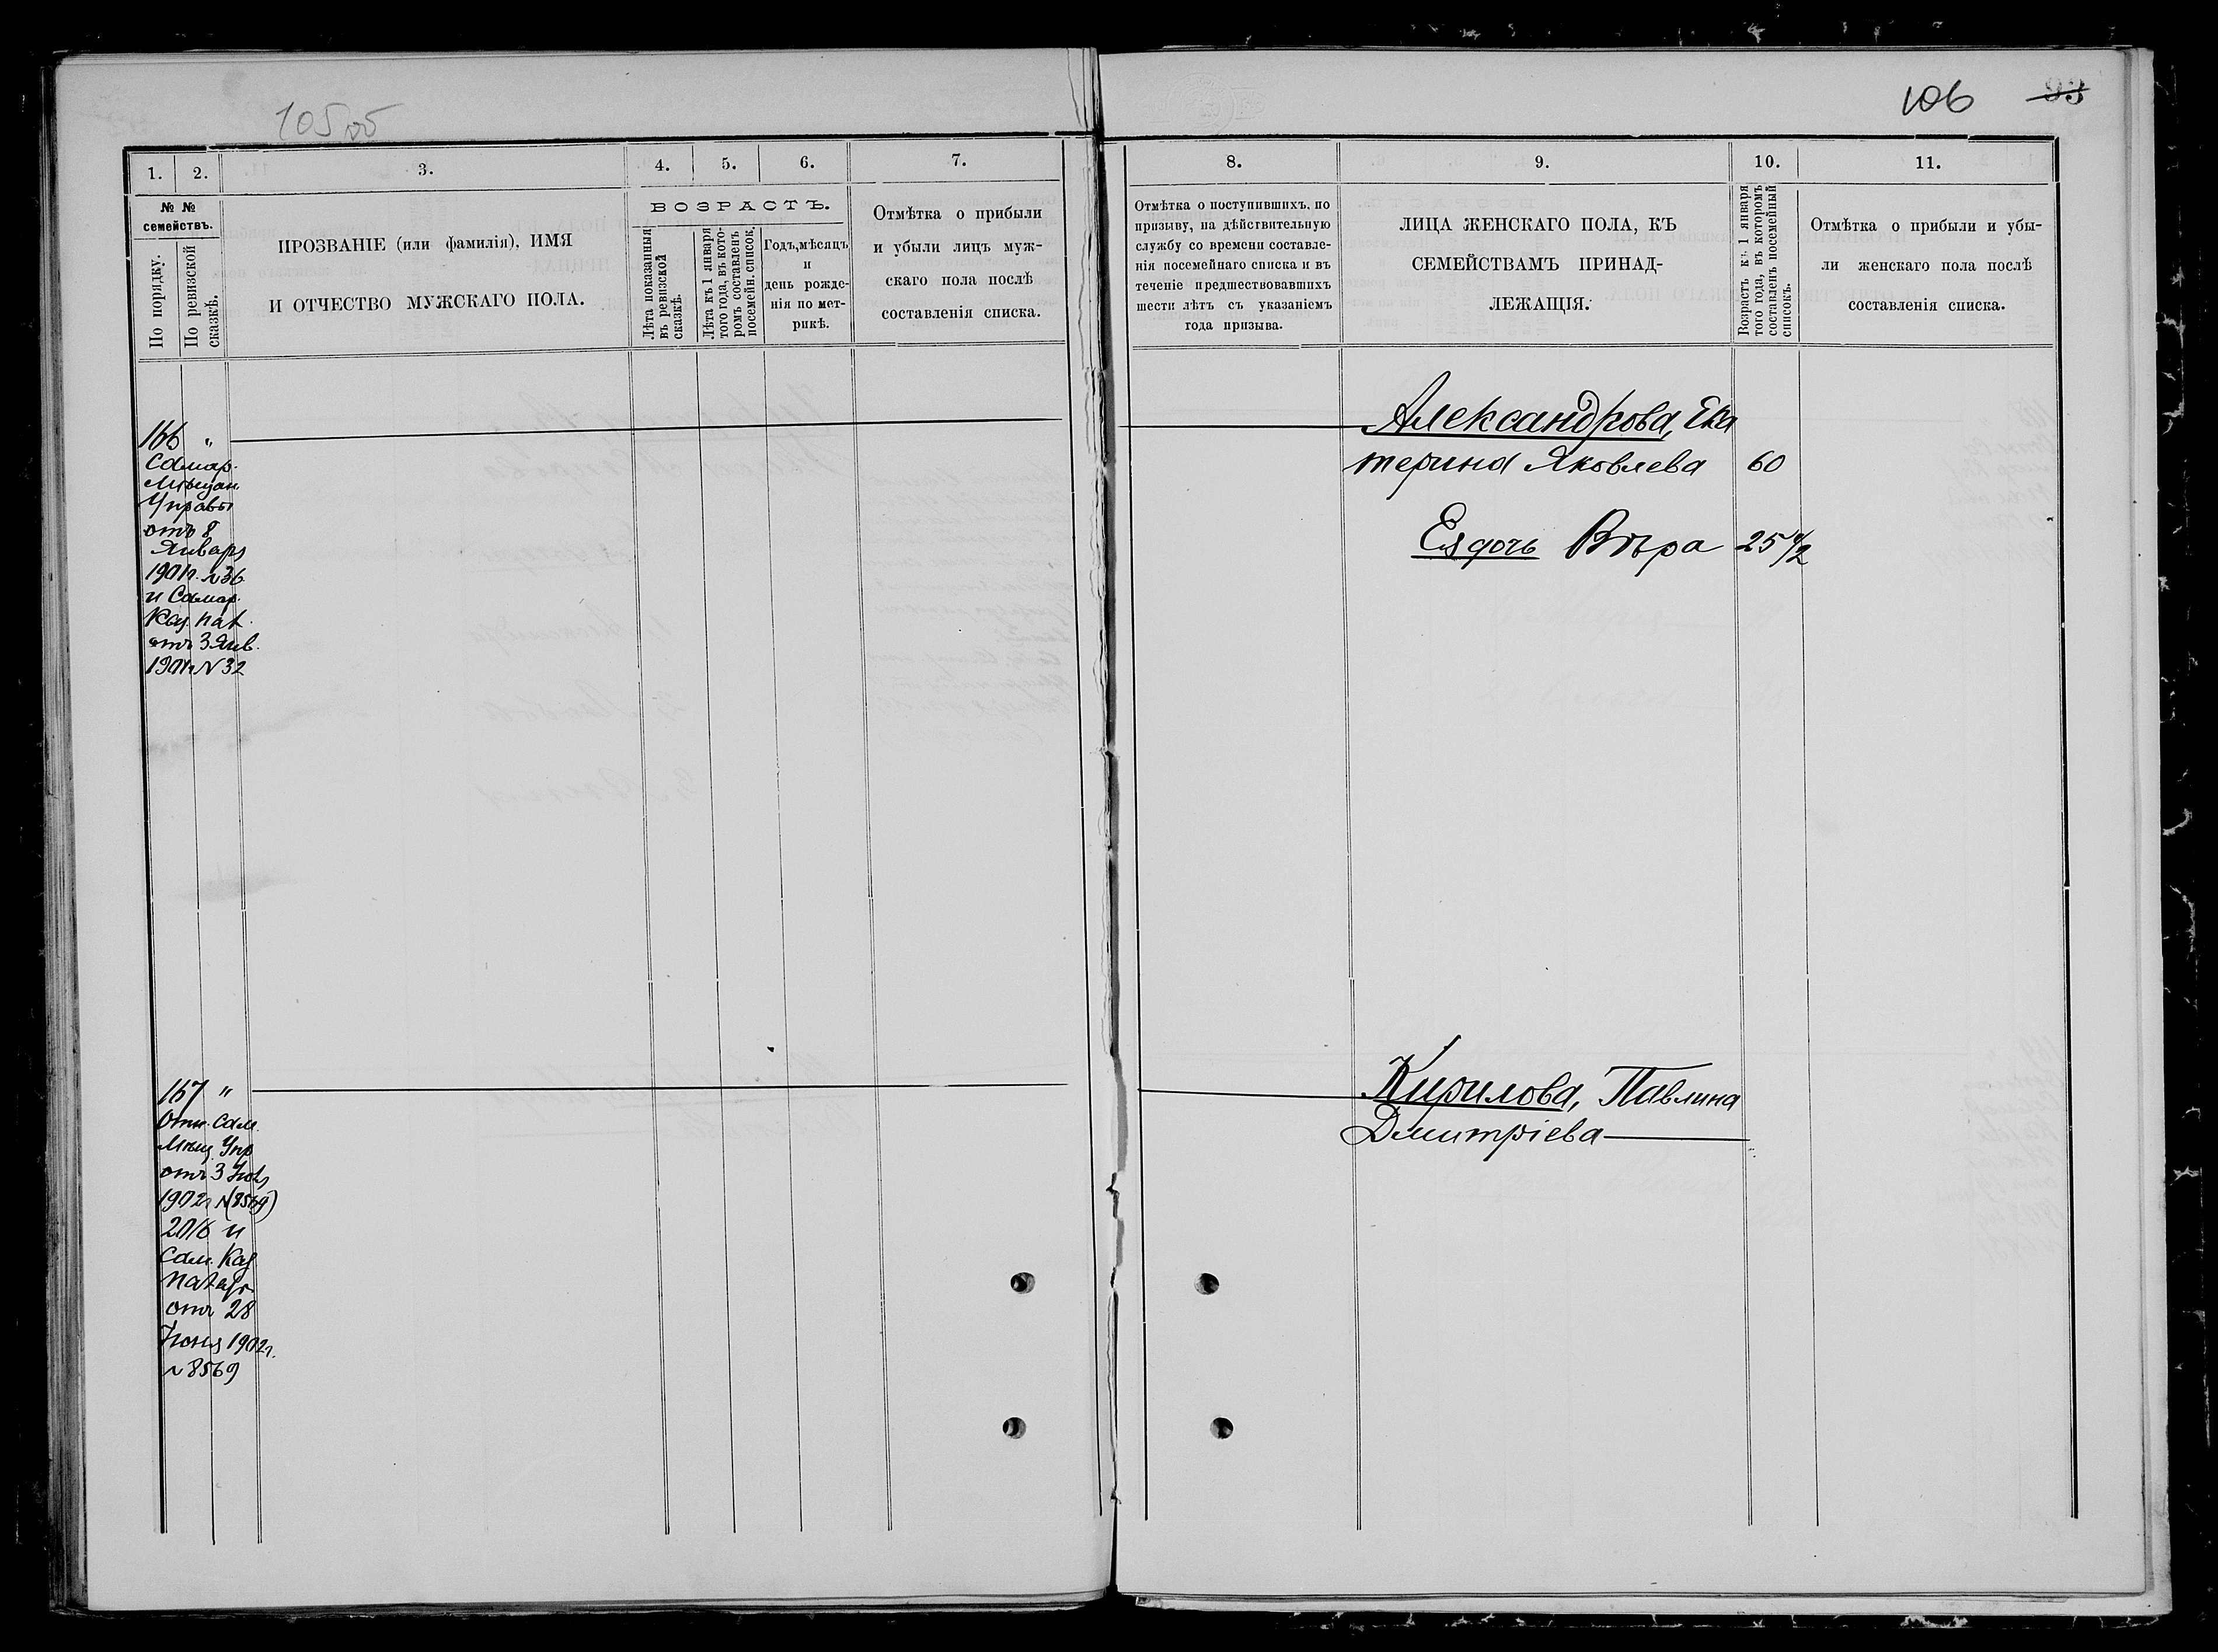 105об
106 93
1. 2. 3. 4. 5. 6. 7.
№ №
семействъ.
По порядку.
По ревизской
сказкѣ.
ПРОЗВАНІЕ (или фамилія), ИМЯ
И ОТЧЕСТВО МУЖСКАГО ПОЛА.
ВОЗРАСТЪ.
Лѣта показанныя
въ ревизской
сказкѣ.
Лѣта къ 1 января
того года, въ кото-
ромъ составленъ
посемейн. список.
Годъ, мѣсяцъ
и
день рожде-
нія по мет-
рикѣ.
Отмѣтка о прибыли
и убыли лицъ муж-
скаго пола послѣ
составленія списка.
166 "
Самар.
Мѣщан.
Управы
отъ 8
Января
1901г. №36
и Самар.
Каз. Пал.
отъ 3 Янв.
1901г. №32
167 "
Отн. Сам.
Мѣщ. Упр
отъ 3
1902г №(8569)
2016 и
Сам. Каз
отъ 28
Іюня 1902г.
№8569
8. 9. 10. 11.
Отмѣтка о поступившихъ, по
призыву, на дѣйствительную
службу со времени составле-
нія посемейнаго списка и въ
теченіе предшествовавшихъ
шести лѣтъ съ указаніемъ
года призыва.
ЛИЦА ЖЕНСКАГО ПОЛА, КЪ
СЕМЕЙСТВАМЪ ПРИНАД-
ЛЕЖАЩІЯ.
Возрастъ къ 1 января
того года, въ которомъ
составленъ посемейный
списокъ.
Отмѣтка о прибыли и убы-
ли женскаго пола послѣ
составленія списка.
Александрова, Ека
терина Яковлева 60
Ея дочь Вѣра 25 1/2
Кирилова, Павлина
Дмитріева